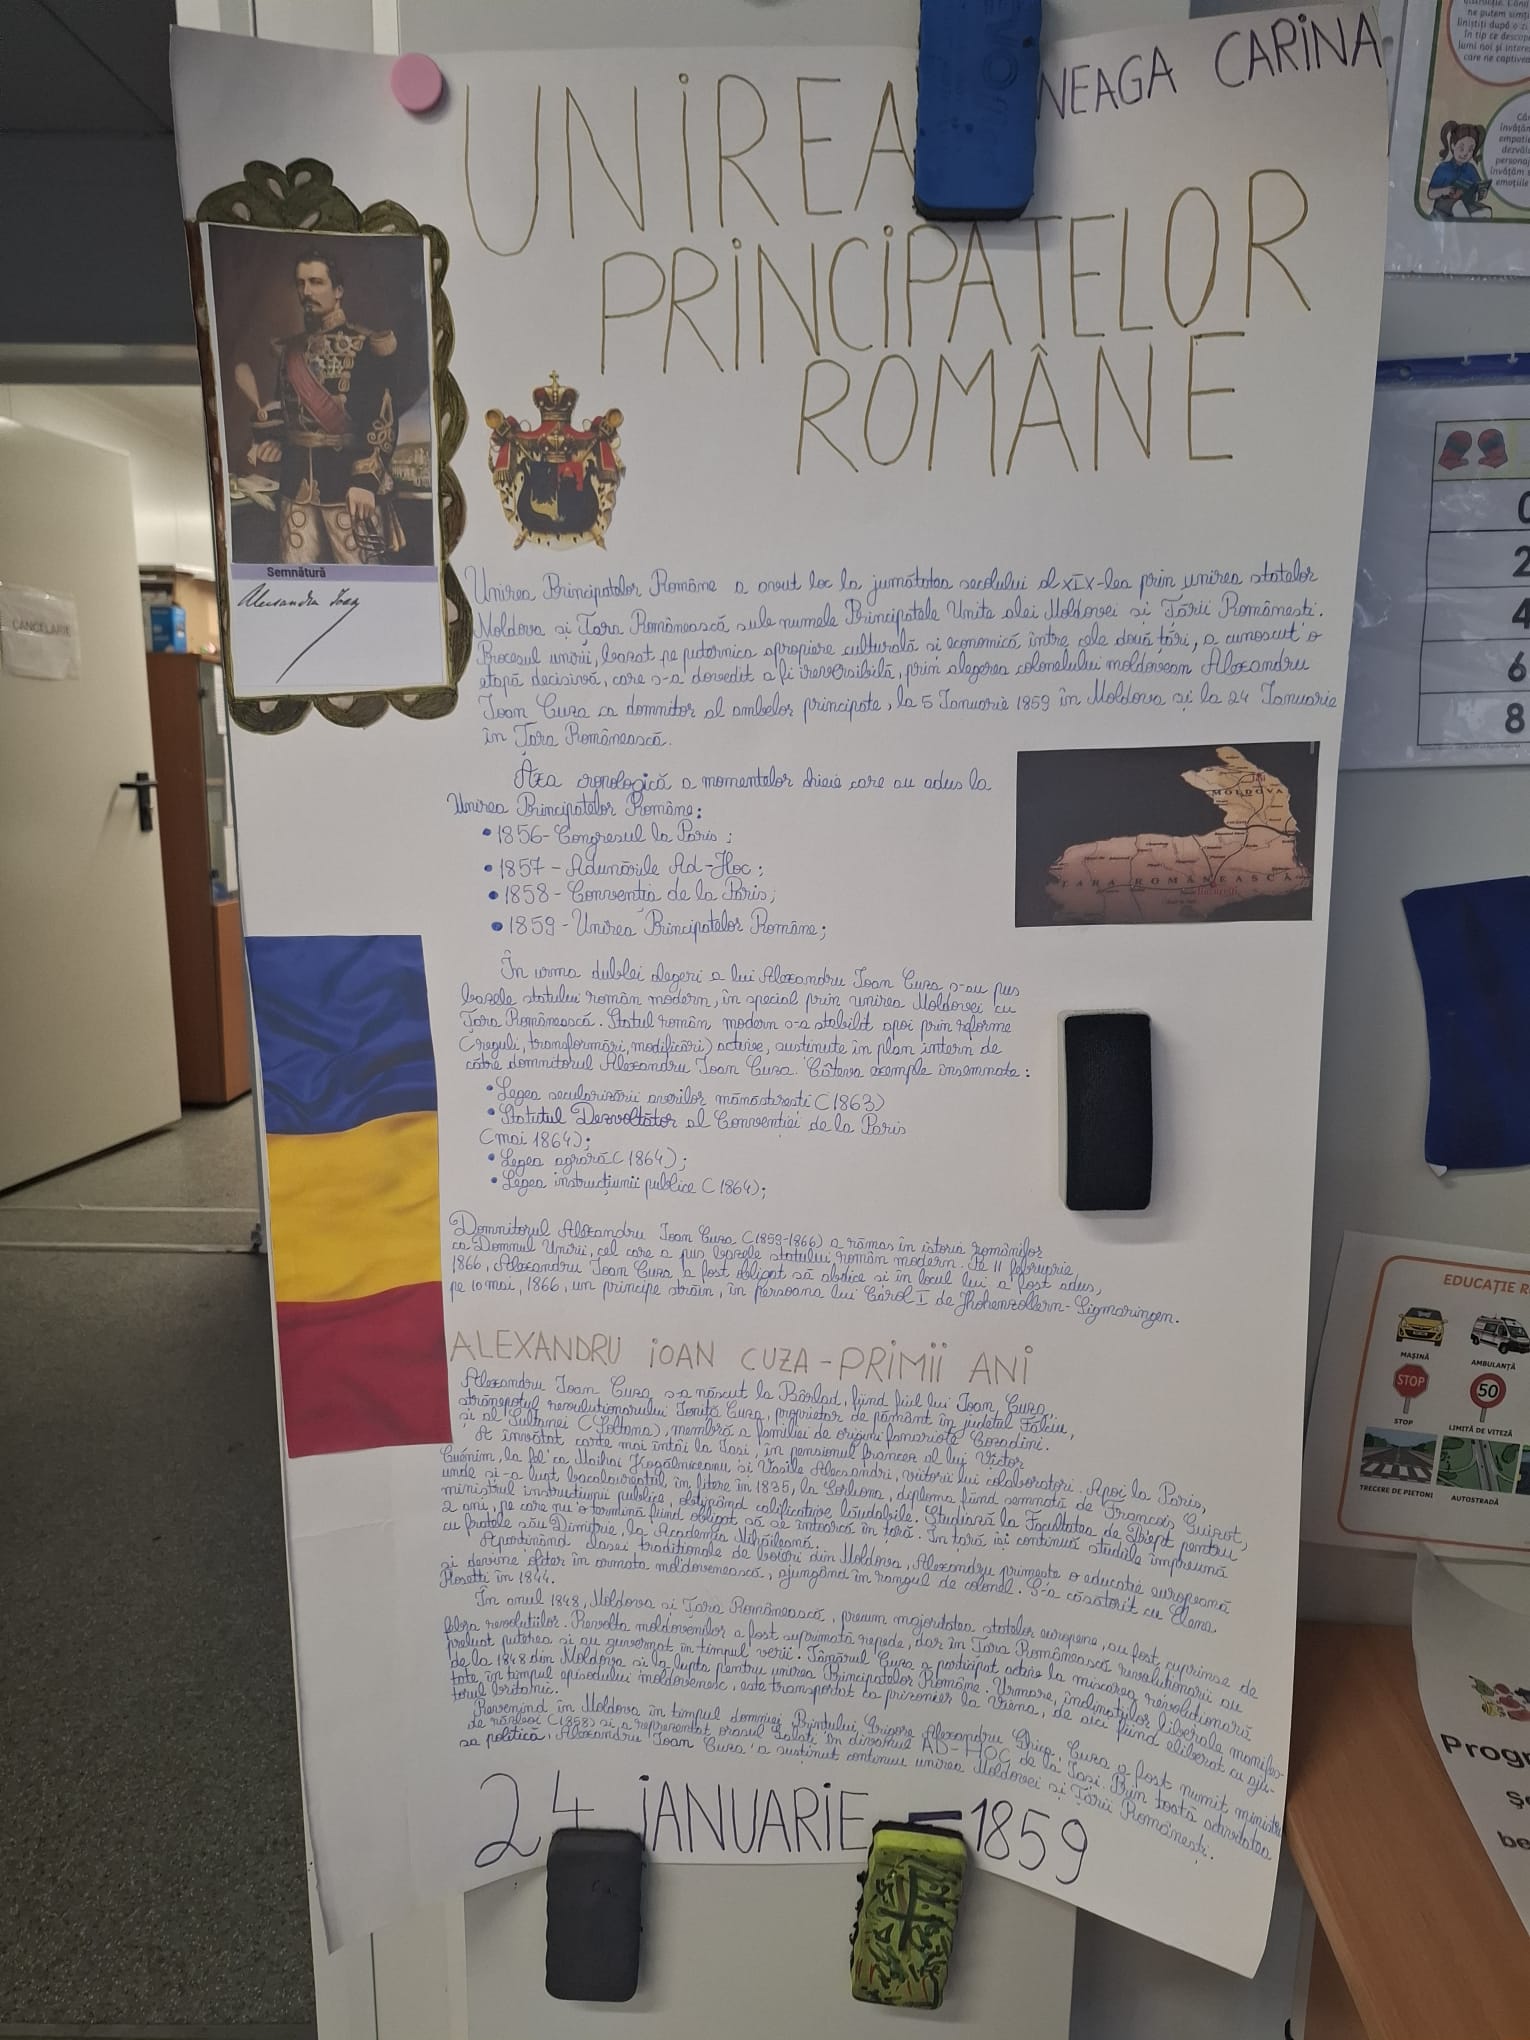 NEAGA CARINA
UNIREA
PRINCIPATELOR
ROMÂNE
Semnătură
Unirea Principatelor Române a avut loc la jumătatea secolului al XIX-lea prin unirea statelor
Moldova și Țara Românească sub numele Principatele Unite alei Moldovei și Țării Românești.
Procesul unirii, bazat pe puternica apropiere culturală și economică între cele două țări, a cunoscut o
etapă decisivă, care s-a dovedit a fi ireversibilă, prin alegerea colonelului moldovean Alexandru
Ioan Cuza ca domnitor al ambelor principate, la 5 Ianuarie 1859 în Moldova și la 24 Ianuarie
în Țara Românească.
Axa cronologică a momentelor cheie care au adus la
Unirea Principatelor Române:
• 1856-Congresul la Paris;
• 1857 - Adunările Ad-Hoc;
• 1858 - Convenția de la Paris;
• 1859 - Unirea Principatelor Române;
MOLDOVA
ȚARA ROMÂNEASCĂ
București
În urma dublei alegeri a lui Alexandru Ioan Cuza s-au pus
bazele statului român modern, în special prin unirea Moldovei cu
Țara Românească. Statul român modern s-a stabilit apoi prin reforme
(reguli, transformări, modificări) active, susținute în plan intern de
către domnitorul Alexandru Ioan Cuza. Câteva exemple însemnate:
• Legea secularizării averilor mănăstirești (1863)
• Statutul Dezvoltător al Convenției de la Paris
(mai 1864);
• Legea agrară (1864);
• Legea instrucțiunii publice (1864);
Domnitorul Alexandru Ioan Cuza (1859-1866) a rămas în istoria românilor
ca Domnul Unirii, cel care a pus bazele statului român modern. Pe 11 februarie
1866, Alexandru Ioan Cuza a fost obligat să abdice și în locul lui a fost adus,
pe 10 mai, 1866, un principe străin, în persoana lui Carol I de Hohenzollern-Sigmaringen.
ALEXANDRU IOAN CUZA - PRIMII ANI
Alexandru Ioan Cuza s-a născut la Bârlad, fiind fiul lui Ioan Cuza,
strănepotul revoluționarului Ioniță Cuza, proprietar de pământ în județul Fălciu,
și al Sultanei (Soltana), membră a familiei de origini fanariote Cozadini.
A învățat carte mai întâi la Iași, în pensionul francez al lui Victor
Cuénim, la fel ca Maihai Kogălniceanu și Vasile Alecsandri, viitorii lui colaboratori. Apoi la Paris,
unde și-a luat bacalaureatul în litere în 1835, la Sorbona, diploma fiind semnată de Francois Guizot,
ministrul instrucțiunii publice, obținând calificative lăudabile. Studiază la Facultatea de Drept pentru
2 ani, pe care nu o termină fiind obligat să se întoarcă în țară. În țară își continuă studiile împreună
cu fratele său Dimitrie, la Academia Mihăileană.
Aparținând clasei tradiționale de boieri din Moldova, Alexandru primește o educație europeană
și devine ofițer în armata moldovenească, ajungând în rangul de colonel. S-a căsătorit cu Elena
Rosetti în 1844.
În anul 1848, Moldova și Țara Românească, precum majoritatea statelor europene, au fost cuprinse de
febra revoluțiilor. Revolta moldovenilor a fost suprimată repede, dar în Țara Românească revoluționarii au
preluat puterea și au guvernat în timpul verii. Tânărul Cuza a participat activ la mișcarea revoluționară
de la 1848 din Moldova și la lupta pentru unirea Principatelor Române. Urmare, înclinațiilor liberale manifes-
tate, în timpul episodului moldovenesc, este transportat ca prizonier la Viena, de aici fiind eliberat cu aju-
torul britanic.
Revenind în Moldova în timpul domniei Prințului Grigore Alexandru Ghica, Cuza a fost numit ministru
de război (1858) și a reprezentat orașul Galați în divanul AD-HOC de la Iași. Prin toată activitatea
sa politică, Alexandru Ioan Cuza a susținut continuu unirea Moldovei și Țării Românești.
24 IANUARIE - 1859
CANCELARIE
ne putem
liniști după o zi
în tip ce descop
lumi noi și intere
care ne captivea
învățăm
empatie
personaj
învățăm
emoțiile
0
2
4
6
8
EDUCAȚIE R
MAȘINĂ
AMBULANȚĂ
STOP
50
STOP
LIMITĂ DE VITEZĂ
TRECERE DE PIETONI
AUTOSTRADĂ
Progr
be